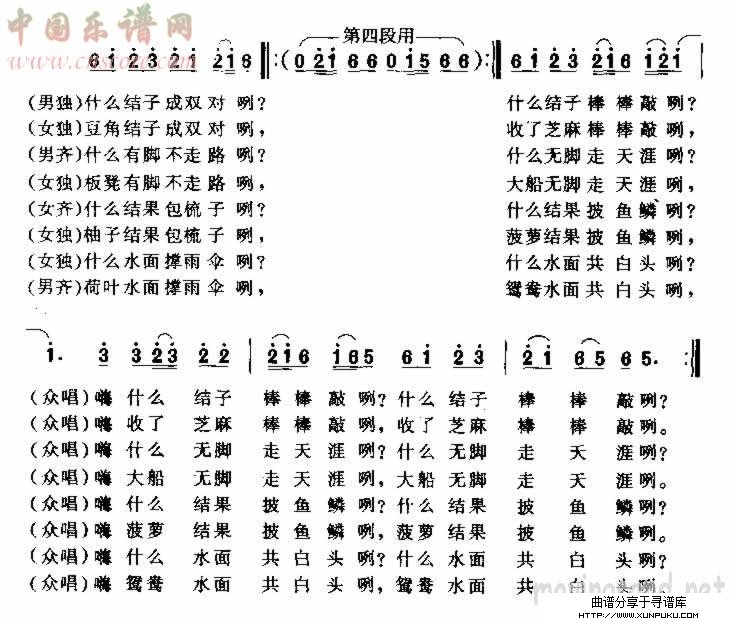 中国乐谱网
www.cnscore.com
第四段用
6 1 2 3 2 1 216 :( 0 21 6 6 0 1 5 6 6 ): 6 1 2 3 216 121
(男独)什么结子成双对咧? 什么结子棒棒敲咧?
(女独)豆角结子成双对咧, 收了芝麻棒棒敲咧,
(男齐)什么有脚不走路咧? 什么无脚走天涯咧?
(女独)板凳有脚不走路咧, 大船无脚走天涯咧,
(女齐)什么结果包梳子咧? 什么结果披鱼鳞咧?
(女独)柚子结果包梳子咧, 菠萝结果披鱼鳞咧,
(女独)什么水面撑雨伞咧? 什么水面共白头咧?
(男齐)荷叶水面撑雨伞咧, 鸳鸯水面共白头咧,
1. 3 3 23 2 2 216 165 6 1 2 3 2 1 6 5 6 5. :
(众唱)嗨什么结子棒棒敲咧?什么结子棒棒敲咧?
(众唱)嗨收了芝麻棒棒敲咧,收了芝麻棒棒敲咧。
(众唱)嗨什么无脚走天涯咧?什么无脚走天涯咧?
(众唱)嗨大船无脚走天涯咧,大船无脚走天涯咧。
(众唱)嗨什么结果披鱼鳞咧?什么结果披鱼鳞咧?
(众唱)嗨菠萝结果披鱼鳞咧,菠萝结果披鱼鳞咧。
(众唱)嗨什么水面共白头咧?什么水面共白头咧?
(众唱)嗨鸳鸯水面共白头咧,鸳鸯水面共白头咧。
曲谱分享于寻谱库
HTTP://WWW.XUNPUKU.COM